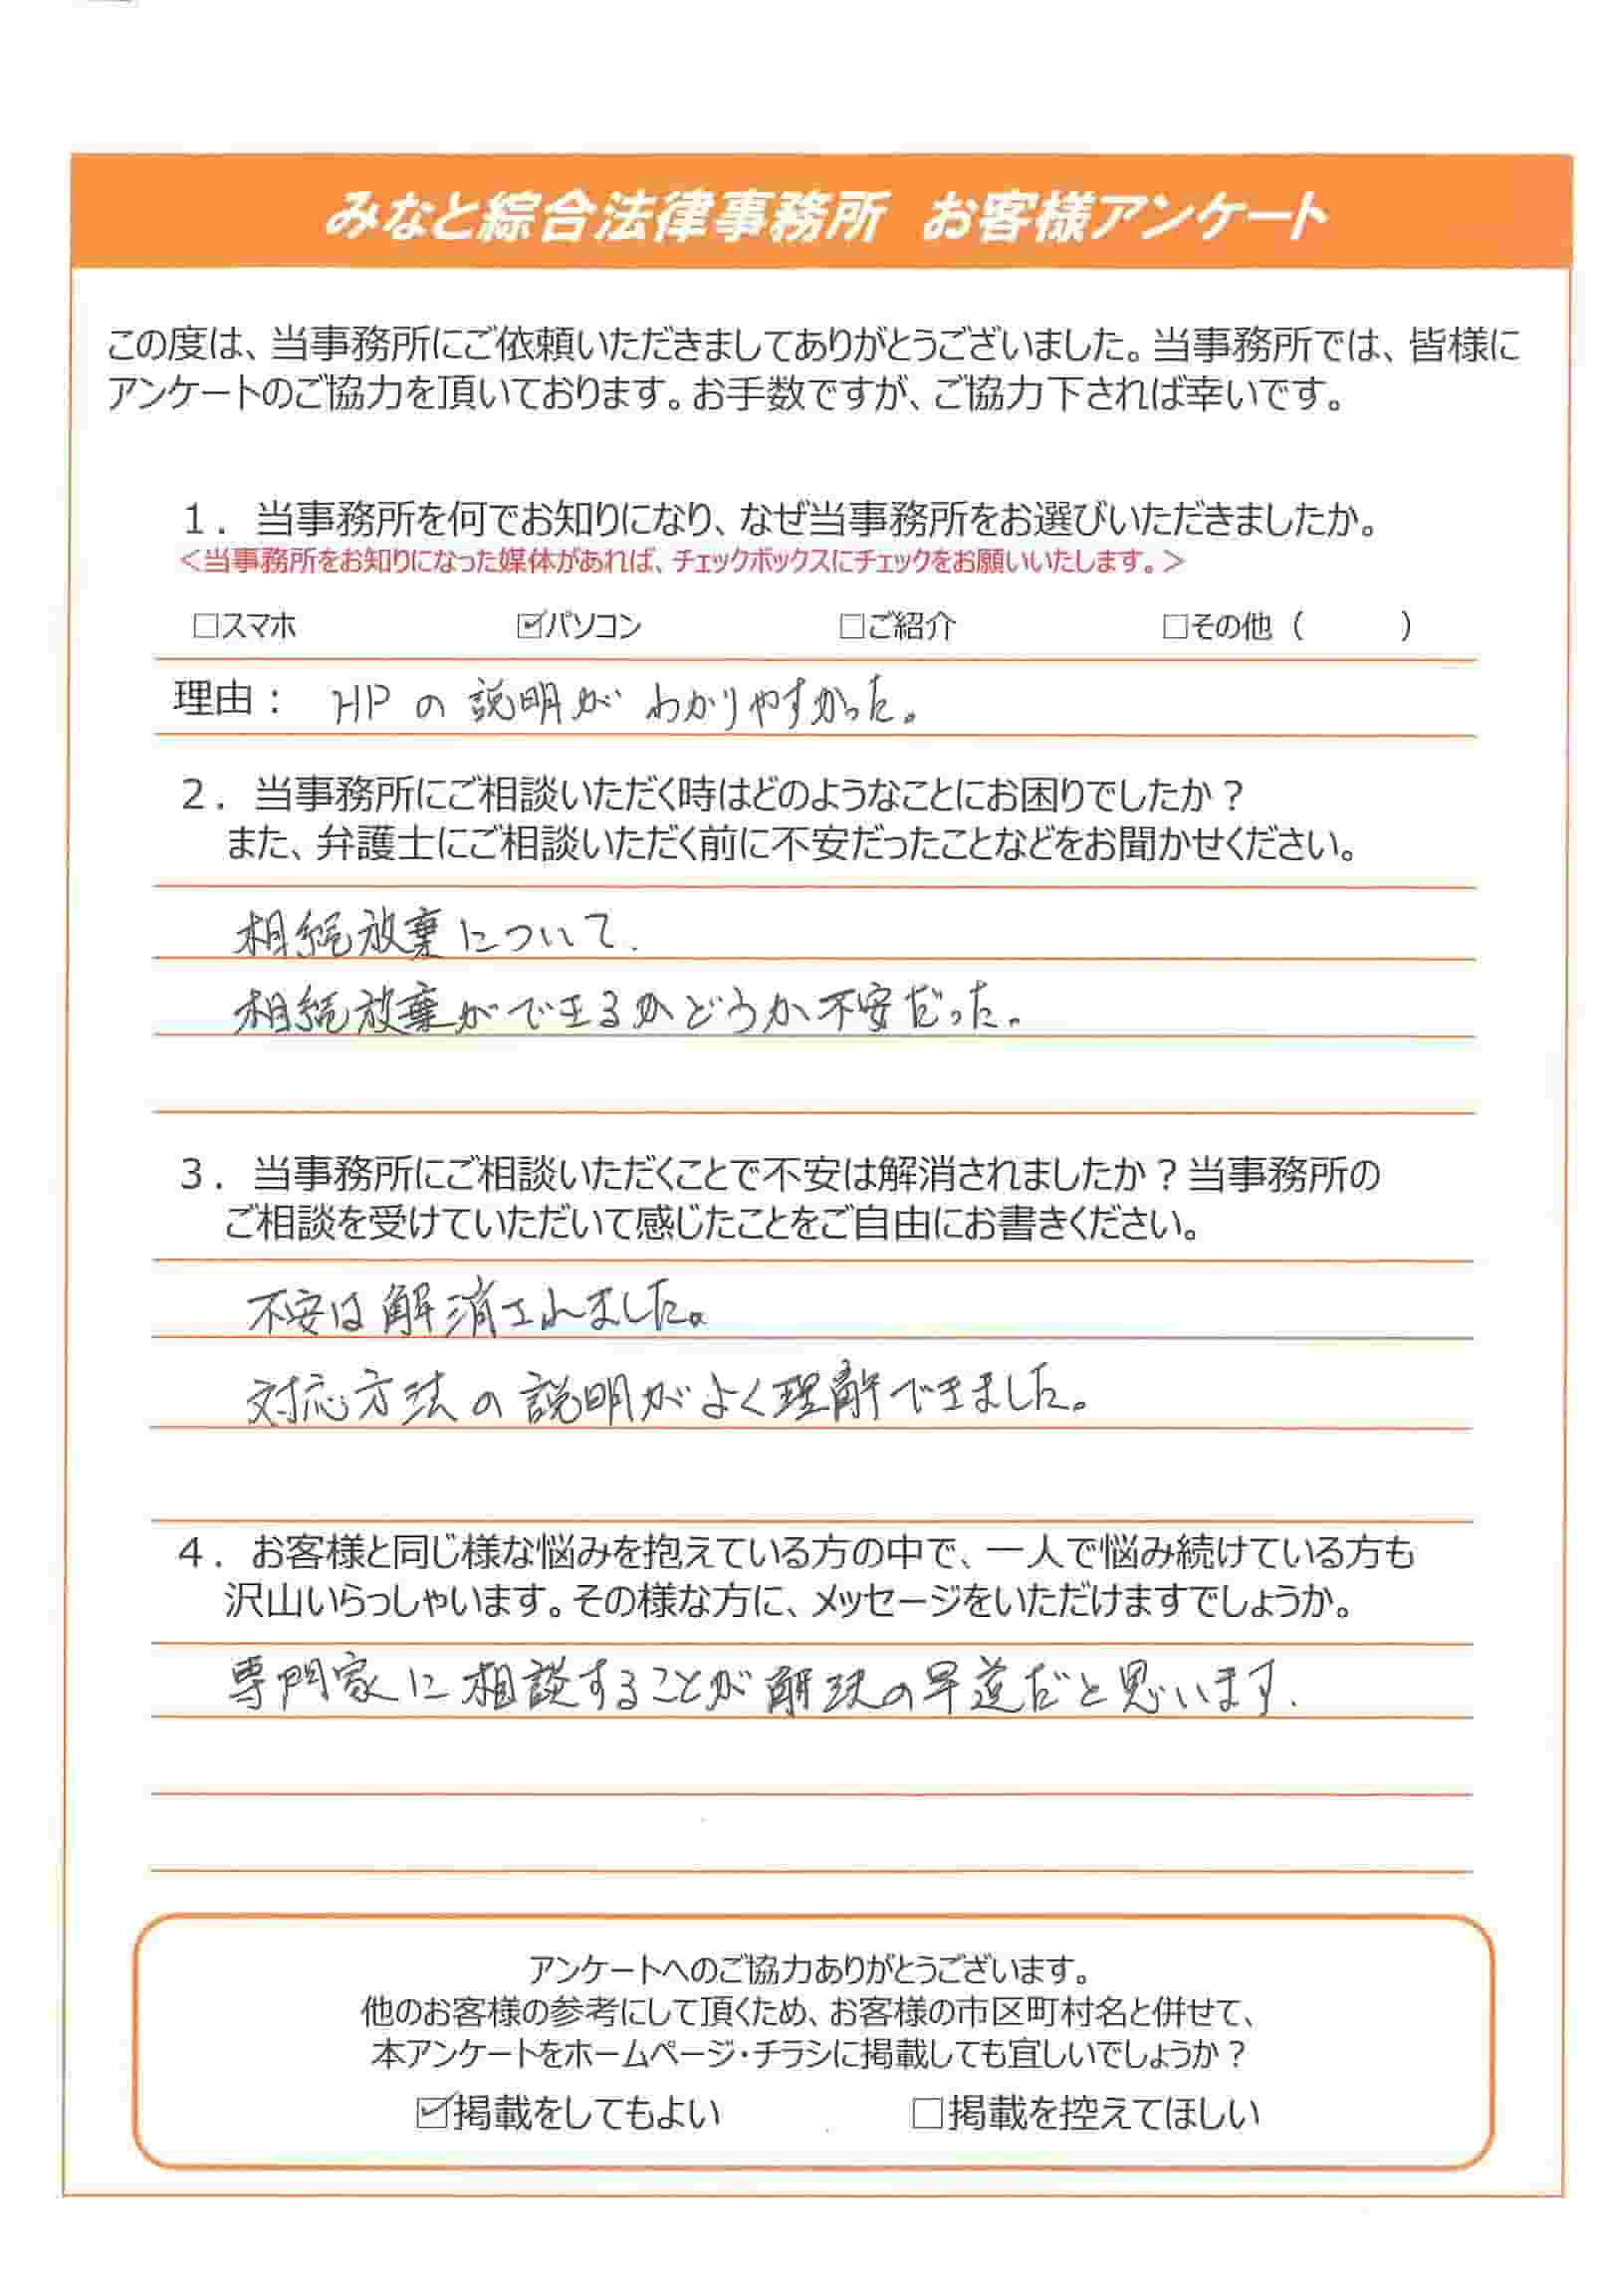 みなと綜合法律事務所　お客様アンケート
この度は、当事務所にご依頼いただきましてありがとうございました。当事務所では、皆様に
アンケートのご協力を頂いております。お手数ですが、ご協力下されば幸いです。
１．当事務所を何でお知りになり、なぜ当事務所をお選びいただきましたか。
＜当事務所をお知りになった媒体があれば、チェックボックスにチェックをお願いいたします。＞
□スマホ　☑パソコン　□ご紹介　□その他（　　　）
理由：HPの説明がわかりやすかった。
２．当事務所にご相談いただく時はどのようなことにお困りでしたか？
また、弁護士にご相談いただく前に不安だったことなどをお聞かせください。
相続放棄について.
相続放棄ができるかどうか不安だった。
３．当事務所にご相談いただくことで不安は解消されましたか？当事務所の
ご相談を受けていただいて感じたことをご自由にお書きください。
不安は解消されました。
対応方法の説明がよく理解できました。
４．お客様と同じ様な悩みを抱えている方の中で、一人で悩み続けている方も
沢山いらっしゃいます。その様な方に、メッセージをいただけますでしょうか。
専門家に相談することが解決の早道だと思います.
アンケートへのご協力ありがとうございます。
他のお客様の参考にして頂くため、お客様の市区町村名と併せて、
本アンケートをホームページ・チラシに掲載しても宜しいでしょうか？
☑掲載をしてもよい　□掲載を控えてほしい